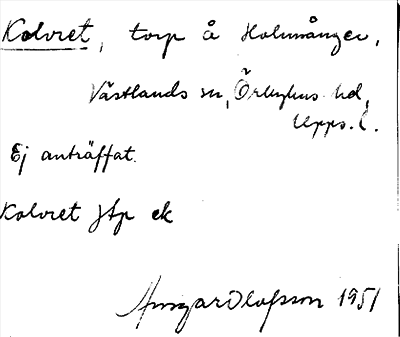 Kolvret, torp å Holmånger,
Västlands sn, Örbyhus hd,
Upps. l.
Ej anträffat.
Kolvret jtp ek
Ansgar Olofsson 1951